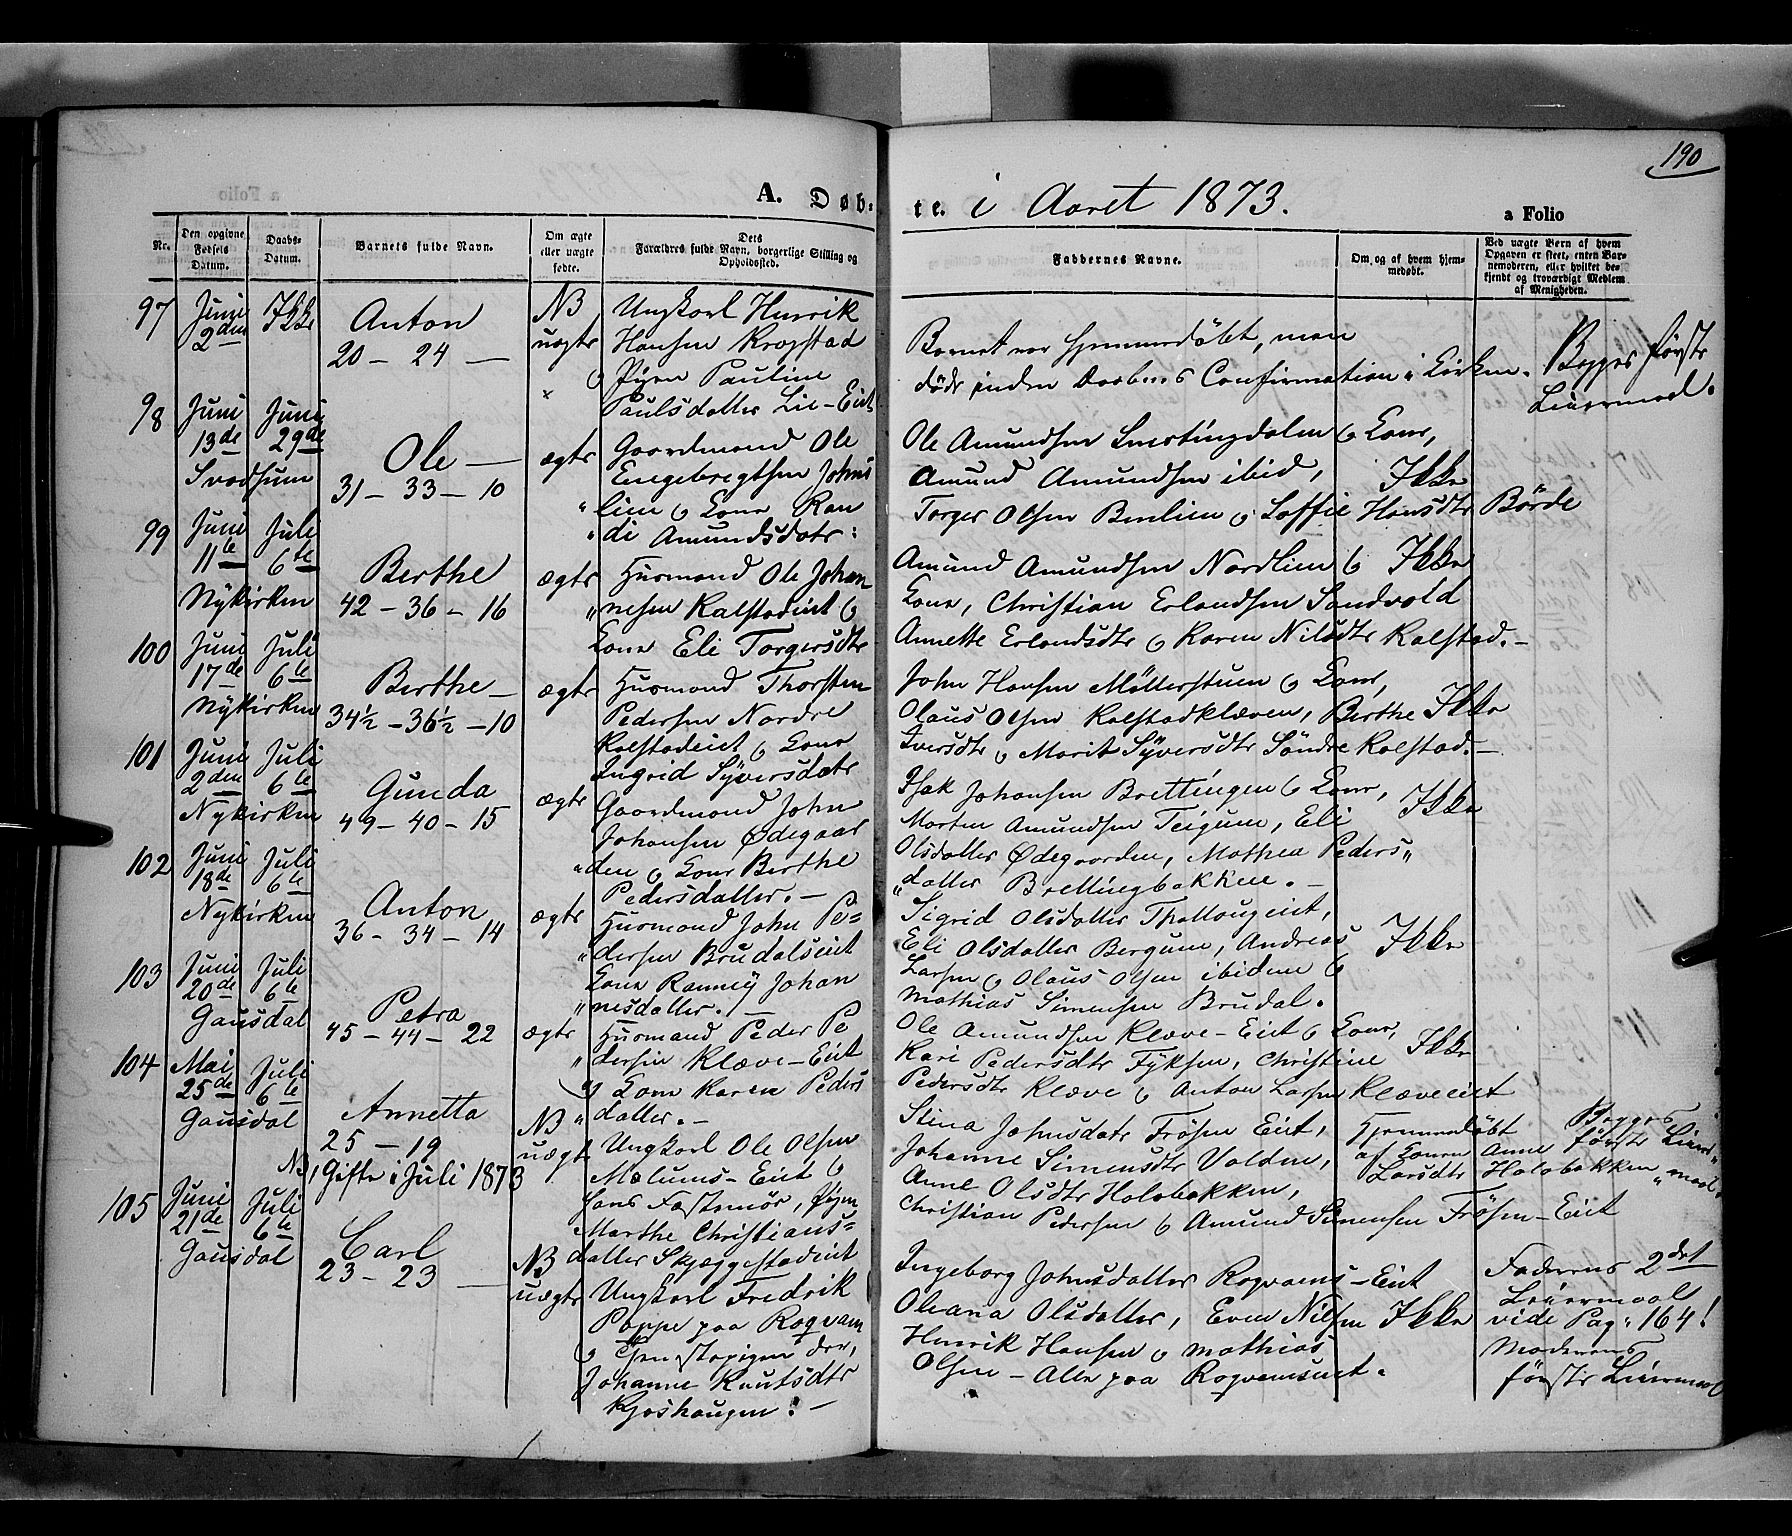 190
A. Døb-
te. i Aaret 1873.
a Folio
Nr.
Den opgivne Fødsels Datum.
Daabs-Datum.
Barnets fulde Navn.
Om ægte eller uægte fødte.
Dets Forældres fulde Navn, borgerlige Stilling og Opholdssted.
Faddernes Navne.
Om og af hvem hjem-
medøbt.
Ved uægte Børn af hvem
Opgaven er skeet, enten Bar-
nemoderen, eller hvilket be-
kjendt og troværdigt Medlem
af Menigheden.
97
Juni 2den
Ikke
Anton
20 - 24 -
NB uægte
Ungkarl Henrik
Hansen Krogstad
o Pigen Pauline
Paulsdatter Lie-Eiet
Barnet var hjemmedøbt, men
døde inden Daabens Confirmation i Kirken.
Begges første
Leiermaal.
98
Juni 13de
Juni 29de
Svadsum
Ole
31 - 33 - 10
ægte
Gaardmand Ole
Engebregtsen Johns
"lien o Kone Ran
"di Amundsdatr:
Ole Amundsen Smestingdalen o Kone,
Amund Amundsen ibid,
Torger Olsen Benlien o Soffie Hansdtr Börde
Ikke
99
Juni 11te
Juli 6te
Nykirken
Berthe
42 - 36 - 16
ægte
Husmand Ole Johan
"nesen Kalstadeiet o
Kone Eli Torgersdtr
Amund Amundsen Nordlien o
Kone, Christian Erlandsen Sandvold
Annette Erlandsdtr o Karen Nilsdtr Kalstad. -
Ikke
100
Juni 17de
Juli 6te
Nykirken
Berthe
34½ - 36½ - 10
ægte
Husmand Thorsten
Pedersen Nordre
Kalstadeiet o Kone
Ingrid Syversdatr
John Hansen Möllerstuen o Kone,
Olaus Olsen Kalstadkleven, Berthe
Iversdtr o Marit Syversdtr Söndre Kalstad. -
Ikke
101
Juni 2den
Juli 6te
Nykirken
Gunda
49 - 40 - 15
ægte
Gaardmand John
Johansen Ødegaar
"den o Kone Berthe
Pedersdatter. -
Isak Johansen Brettingen o Kone,
Morten Amundsen Teigum, Eli
Olsdatter Ødegaarden, Mathea Peders"
"datter Brettingbakken. -
Ikke
102
Juni 18de
Juli 6te
Nykirken
Anton
36 - 34 - 14
ægte
Husmand John Pe=
"dersen Brudalseiet
Kone Ranney Johan
"nesdatter. -
Sigrid Olsdatter Thallougeiet,
Eli Olsdatter Bergum, Andreas
Larsen o Olaus Olsen ibidem o
Mathias Simensen Brudal.
Ikke
103
Juni 20de
Juli 6te
Gausdal
Petra
45 - 44 - 22
ægte
Husmand Peder Pe
"dersen Klæve-Eiet
o Kone Karen Peders
"datter. -
Ole Amundsen Klæve-Eiet o Kone,
Kari Pedersdtr Fyksen, Christine
Pedersdtr Klæve o Anton Larsen Klæveeiet
Ikke
104
Mai 25de
Juli 6te
Gausdal
Annetta
25 - 19
NB, Gifte i Juli 1873
NB uægte
Ungkarl Ole Olsen
Mælums-Eiet o
hans Fæstemør, Pigen
Marthe Christians=
datter Skjæggestadeiet
Stina Johnsdatr Frösen Eiet,
Johanne Simensdtr Volden,
Anne Olsdtr Holobakken,
Christian Pedersen o Amund Simensen Frösen-Eiet
Hjemmedøbt
af Konen Anne
Larsdtr Holobakken
Begges
første Leier"
"maal.
105
Juni 21de
Juli 6te
Gausdal
Carl
23 - 23 -
NB uægte
Ungkarl Fredrik
Poppe paa Rogvam
o Tjenestepigen der,
Johanne Knutsdtr
Kjoshaugen. -
Ingeborg Johnsdatter Rogvams-Eiet
Oleana Olsdatter, Even Nilsen
Henrik Hansen o Mathias
Olsen - Alle paa Rogvemseiet.
Ikke
Faderens 2det
Leiermaal
vide Pag: 164!
Moderens
første Leiermaal